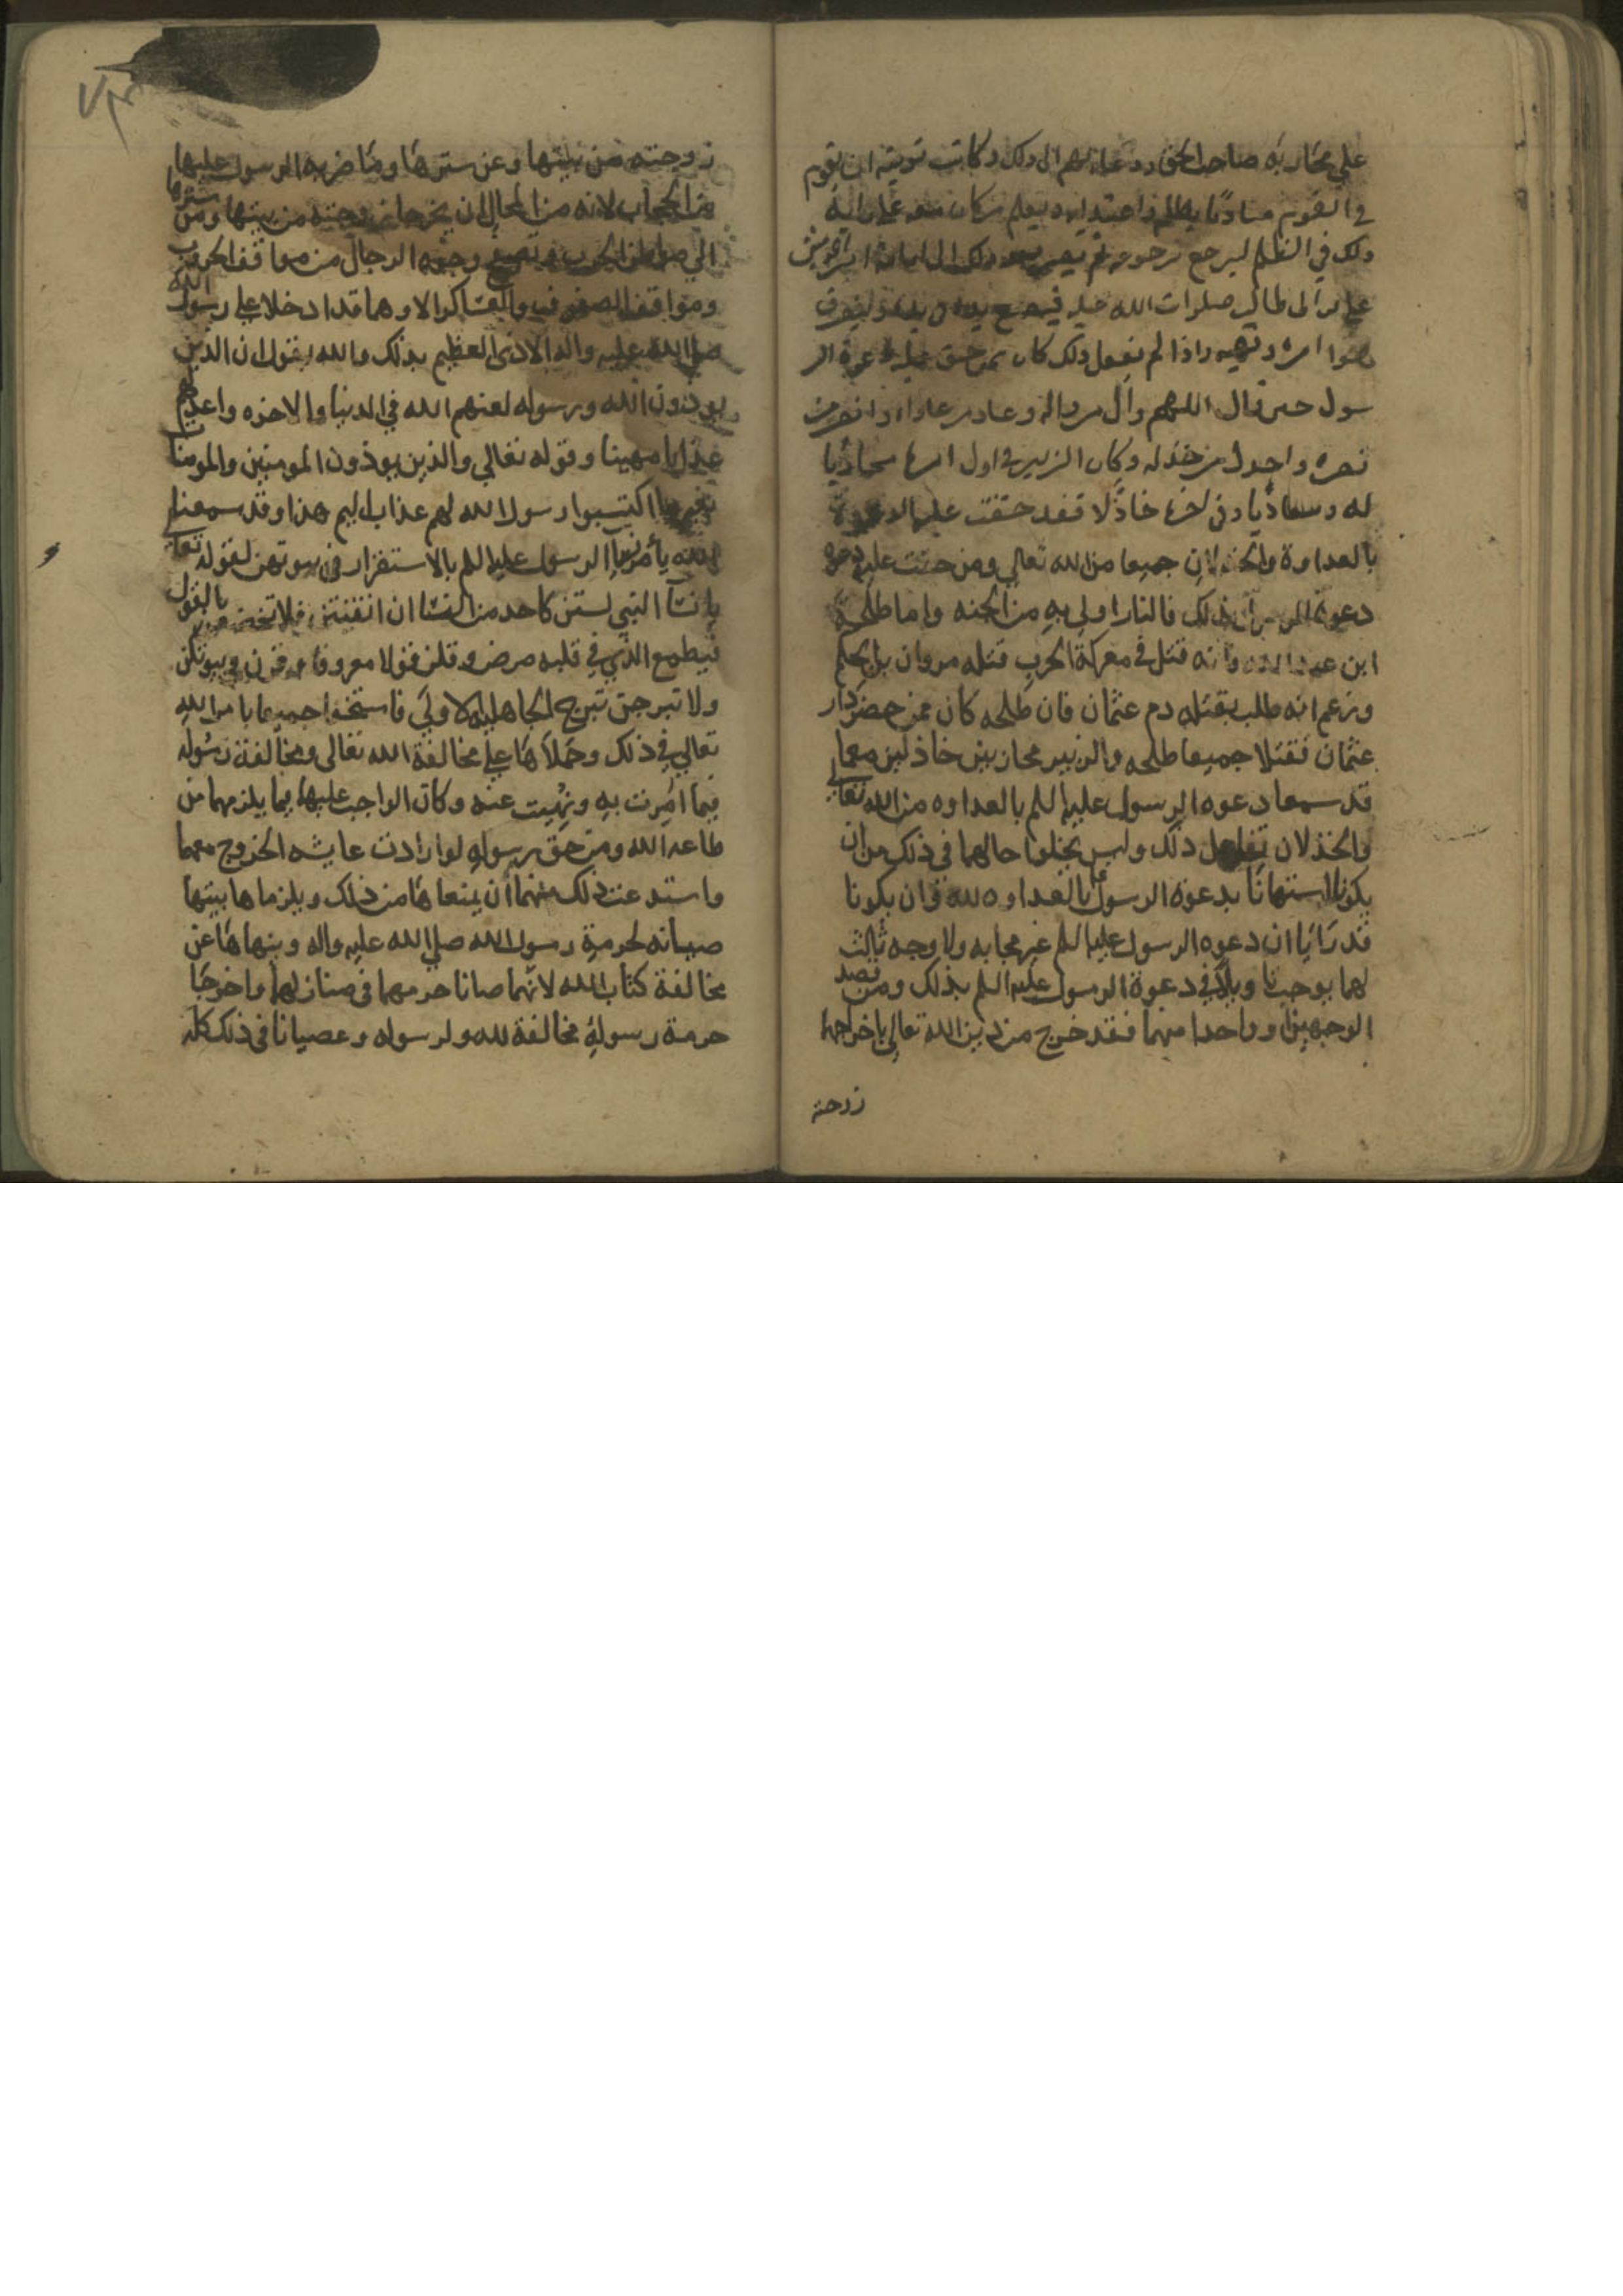 علي محاربه صاحب الحق ودعاه لهم الى ذلك وكانت توبته ان يقوم
في القوم مناديا بظلمه واعتدايه يعلم من كان معه على رايه
ذلك في الظلم ليرجع برجوعه ثم يصير بعد ذلك الى امير المومنين
علي بن ابي طالب صلوات الله عليه فيضع يده في يده وليتصرف
امره ونهيه واذا لم يفعل ذلك كان ممن حق عليه دعوة الر
سول حين قال اللهم وال من والاه وعاد من عاداه وانصر من
نصره واخذل من خذله وكان الزبير في اول امره محاربا
له ومعاديا وفي اخره خاذلا فقد حقت عليه الدعوة
بالعداوة والخذلان جميعا من الله تعالي ومن حقت عليه
دعوة الرسول بذلك فالنار اولي به من الجنه واما طلحة
ابن عبد الله فانه قتل في معركة الحرب قتله مروان بن الحكم
وزعم انه طلب بقتله دم عثمان فان طلحه كان ممن حضر دار
عثمان فقتلا جميعا طلحه والزبير محاربين خاذلين معما
قد سمعا دعوه الرسول عليه السلم بالعداوه من الله تعالي
والخذلان لفاعل ذلك وليس يخلوا حالهما في ذلك من ان
يكونا استهانا بدعوة الرسول بالعداوه لله او ان يكونا
قد رايا ان دعوه الرسول عليه السلم غير مجابه ولا وجه ثالث
لهما يوجب تاويلا في دعوة الرسول عليه السلم بذلك ومن قصد
الوجهين او واحدا منهما فقد خرج من دين الله تعالي باخراجهما
زوجته
زوجته من بيتها وعن سترها وما ضربه الرسول عليها
من الحجاب لانه من المحال ان يخرجا زوجته من بيتها ومن سترها
الي مواطن الحروب وتصفح وجوه الرجال من مواقف الحرب
ومواقف الصفوف والعساكر الا وهما قد ادخلا علي رسول الله
صلي الله عليه واله الاذى العظيم بذلك والله يقول ان الذين
يوذون الله ورسوله لعنهم الله في الدنيا والاخره واعد لهم
عذابا مهينا وقوله تعالي والذين يوذون المومنين والمومنات
بغير ما اكتسبوا رسول الله لهم عذاب اليم هذا وقد سمعنا
الله يأمر نسا الرسول عليه السلم بالاستقرار في بيوتهن لقوله تعالي
يا نسآ النبي لستن كاحد من النسا ان اتقيتن فلا تخضعن بالقول
فيطمع الذي في قلبه مرض وقلن قولا معروفا وقرن في بيوتكن
ولا تبرجن تبرج الجاهليه الاولي فاستخفا جميعا بامر الله
تعالي في ذلك وحملاها علي مخالفة الله تعالى ومخالفة رسوله
فيما امرت به ونهيت عنه وكان الواجب عليهما فيما يلزمهما من
طاعه الله ومن حق رسوله لو ارادت عايشه الخروج معهما
واستدعت ذلك منهما ان يمنعاها من ذلك ويلزماها بيتها
صيانه لحرمة رسول الله صلي الله عليه واله وينهاها عن
مخالفة كتاب الله لانهما صانا حرمهما في منازلهما واخرجا
حرمة رسوله مخالفة لله ولرسوله وعصيانا في ذلك كله